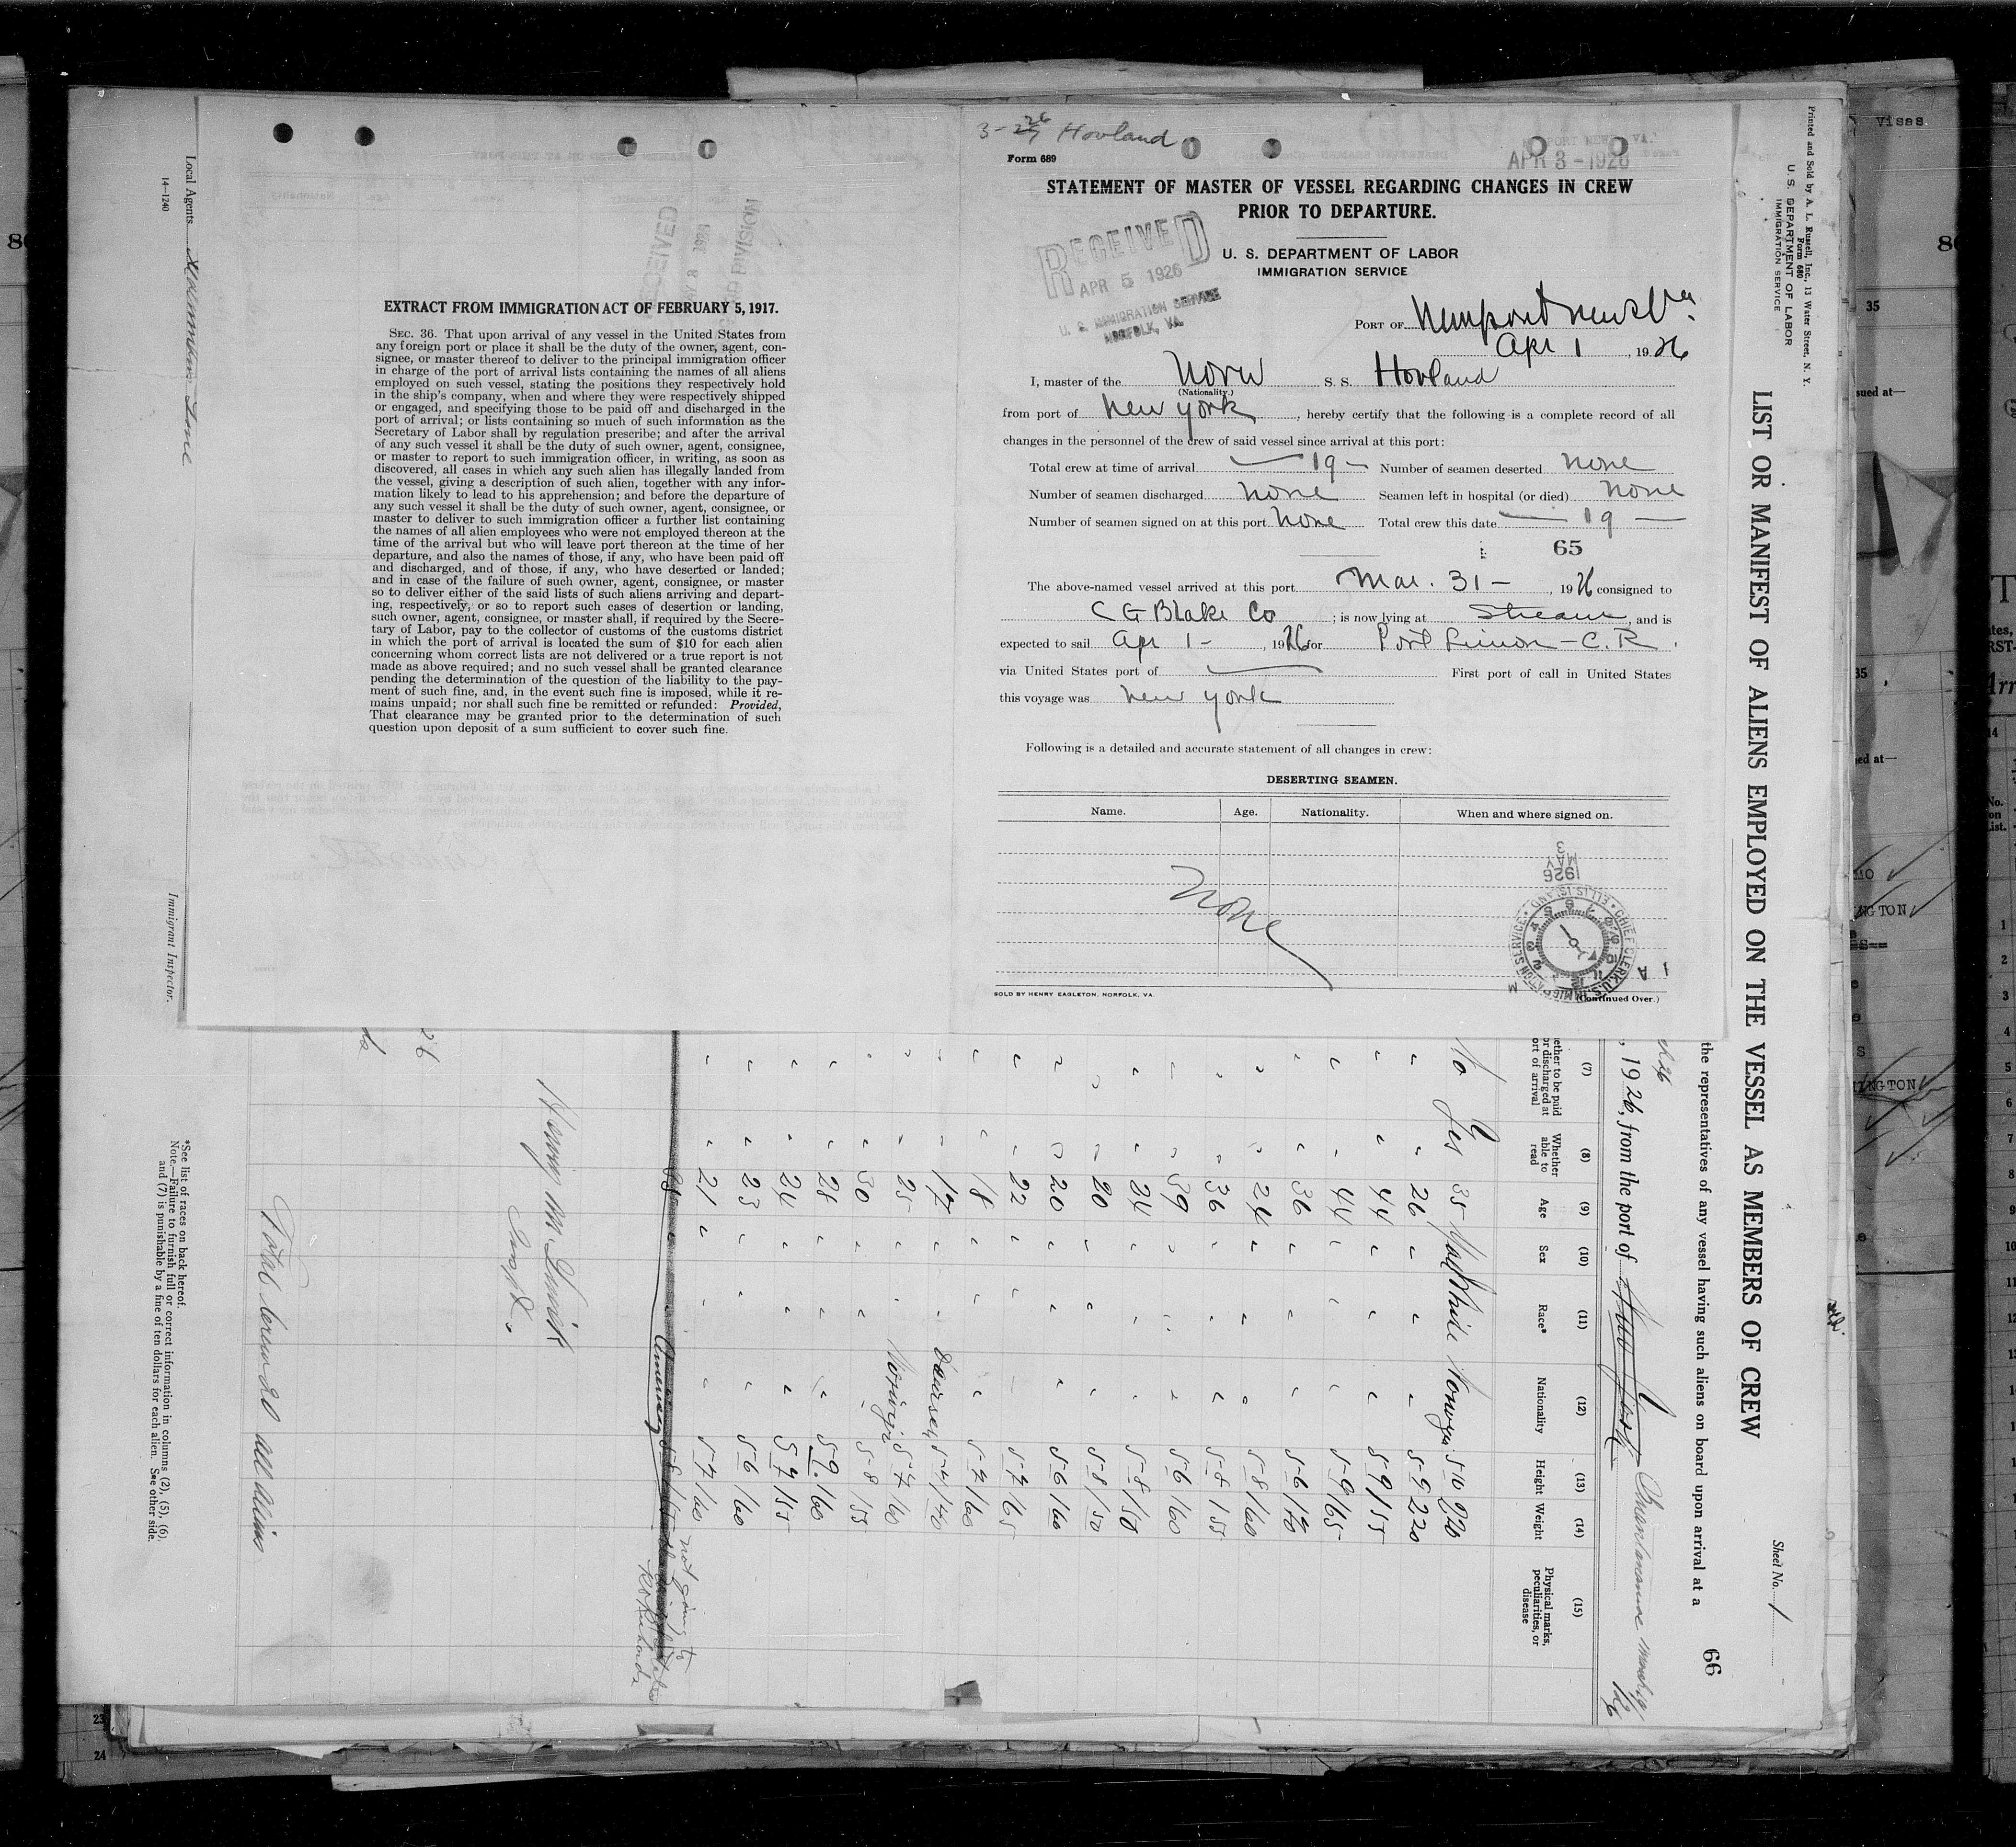 3-26 Hovland
Form 689
APR 3 - 1926
STATEMENT OF MASTER OF VESSEL REGARDING CHANGES IN CREW
PRIOR TO DEPARTURE.
U. S. DEPARTMENT OF LABOR
IMMIGRATION SERVICE
RECEIVED
APR 5 1926
U. S. IMMIGRATION SERVICE
NORFOLK, VA.
PORT OF Newport News Va
Apr 1, 1926
I, master of the Norw S. S. Hovland
(Nationality.)
from port of New York, hereby certify that the following is a complete record of all
changes in the personnel of the crew of said vessel since arrival at this port:
Total crew at time of arrival — 19 — Number of seamen deserted none
Number of seamen discharged none Seamen left in hospital (or died) none
Number of seamen signed on at this port none Total crew this date — 19 —
65
The above-named vessel arrived at this port Mar. 31 —, 1926 consigned to
C G Blake Co; is now lying at Stream, and is
expected to sail Apr 1 -, 1926 for Port Limon - C. R.
via United States port of — First port of call in United States
this voyage was New York
Following is a detailed and accurate statement of all changes in crew:
DESERTING SEAMEN.
Name. Age. Nationality. When and where signed on.
None
1926
MAY
3
CHIEF CLERK U.S. IMMIGRATION SERVICE • ELLIS ISLAND •
SOLD BY HENRY EAGLETON, NORFOLK, VA.
(Continued Over.)
EXTRACT FROM IMMIGRATION ACT OF FEBRUARY 5, 1917.
SEC. 36. That upon arrival of any vessel in the United States from
any foreign port or place it shall be the duty of the owner, agent, con-
signee, or master thereof to deliver to the principal immigration officer
in charge of the port of arrival lists containing the names of all aliens
employed on such vessel, stating the positions they respectively hold
in the ship's company, when and where they were respectively shipped
or engaged, and specifying those to be paid off and discharged in the
port of arrival; or lists containing so much of such information as the
Secretary of Labor shall by regulation prescribe; and after the arrival
of any such vessel it shall be the duty of such owner, agent, consignee,
or master to report to such immigration officer, in writing, as soon as
discovered, all cases in which any such alien has illegally landed from
the vessel, giving a description of such alien, together with any infor-
mation likely to lead to his apprehension; and before the departure of
any such vessel it shall be the duty of such owner, agent, consignee, or
master to deliver to such immigration officer a further list containing
the names of all alien employees who were not employed thereon at the
time of the arrival but who will leave port thereon at the time of her
departure, and also the names of those, if any, who have been paid off
and discharged, and of those, if any, who have deserted or landed;
and in case of the failure of such owner, agent, consignee, or master
so to deliver either of the said lists of such aliens arriving and depart-
ing, respectively, or so to report such cases of desertion or landing,
such owner, agent, consignee, or master shall, if required by the Secre-
tary of Labor, pay to the collector of customs of the customs district
in which the port of arrival is located the sum of $10 for each alien
concerning whom correct lists are not delivered or a true report is not
made as above required; and no such vessel shall be granted clearance
pending the determination of the question of the liability to the pay-
ment of such fine, and, in the event such fine is imposed, while it re-
mains unpaid; nor shall such fine be remitted or refunded: Provided,
That clearance may be granted prior to the determination of such
question upon deposit of a sum sufficient to cover such fine.
Printed and Sold by A. L. Russell, Inc., 13 Water Street, N. Y.
Form 680
U. S. DEPARTMENT OF LABOR
IMMIGRATION SERVICE
Sheet No. 1
LIST OR MANIFEST OF ALIENS EMPLOYED ON THE VESSEL AS MEMBERS OF CREW
66
the representatives of any vessel having such aliens on board upon arrival at a
, 1926, from the port of New York
(7) (8) (9) (10) (11) (12) (13) (14) (15)
Whether able to read
Age
Sex
Race*
Nationality
Height
Weight
Physical marks, peculiarities, or disease
No Yes 35 5 10 220
" " 26 " " " 5 9 220
" " 44 " " " 5 9 155
" " 44 " " " 5 9 165
" " 36 " " " 5 6 170
" " 24 " " " 5 8 160
" " 36 " " " 5 8 155
" " 39 " " " 5 6 160
" " 24 " " " 5 8 150
" " 20 " " " 5 8 150
" " 20 " " " 5 6 160
" " 22 " " " 5 7 165
" " 18 " " " 5 7 160
" " 17 " " 5 7 140
" " 25 " " 5 7 160
" " 30 " " " 5 8 155
" " 28 " " " 5 9 160
" " 24 " " " 5 7 155
" " 23 " " " 5 6 160
" " 21 " " " 5 7 160
not going to
Insp.
Total crew 20 all aliens
Local Agents
14—1240
Immigrant Inspector.
*See list of races on back hereof.
Note.—Failure to furnish full or correct information in columns (2), (5), (6),
and (7) is punishable by a fine of ten dollars for each alien. See other side.
Visas
35
sued at—
23
24